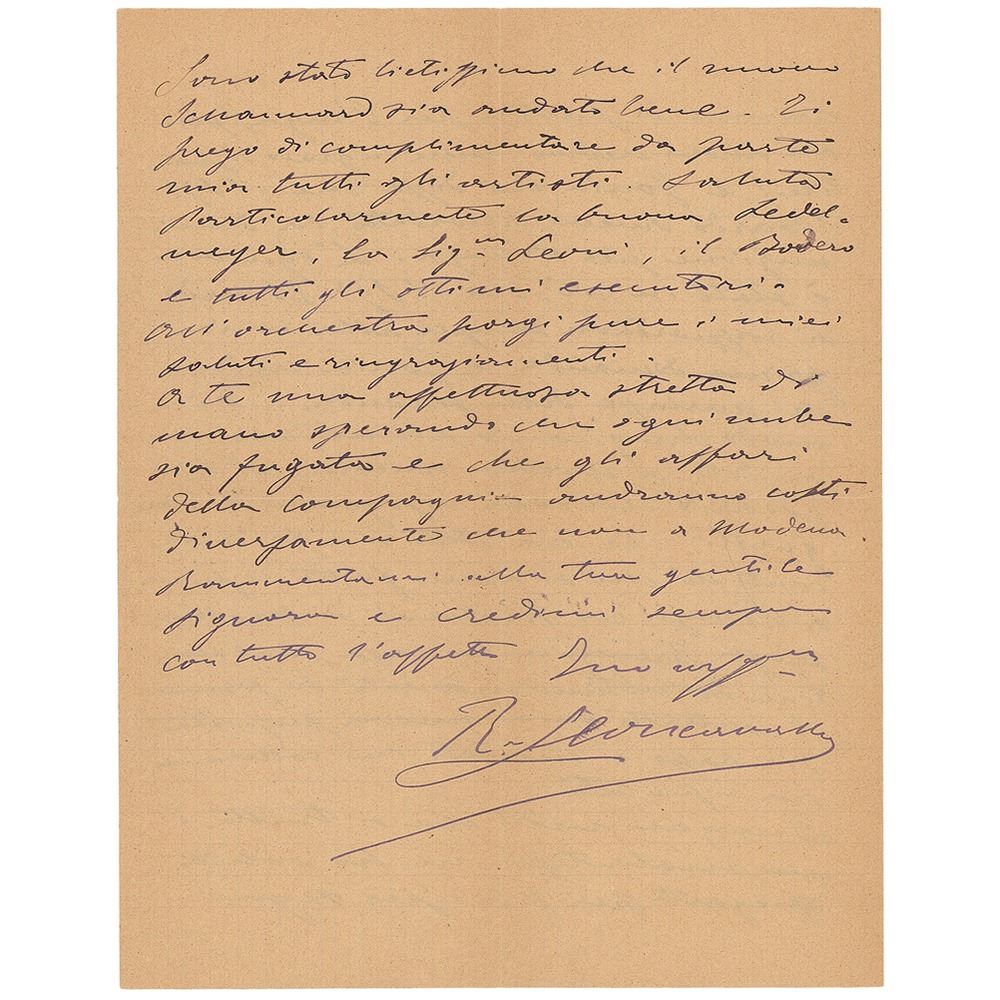 Sono stato lietissimo che il nuovo
Schaunard sia andato bene. Ti
prego di complimentare da parte
mia tutti gli artisti. Saluta
particolarmente la buona Sedel-
meyer, la Sig.na Leoni, il Bodero
e tutti gli ottimi esecutori.
All'orchestra porgi pure i miei
saluti e ringraziamenti.
A te una affettuosa stretta di
mano sperando che ogni nube
sia fugata e che gli affari
della compagnia andranno costì
diversamente che non a Modena.
Rammentami alla tua gentile
signora e credimi sempre
con tutto l'affetto Tuo
R. Leoncavallo